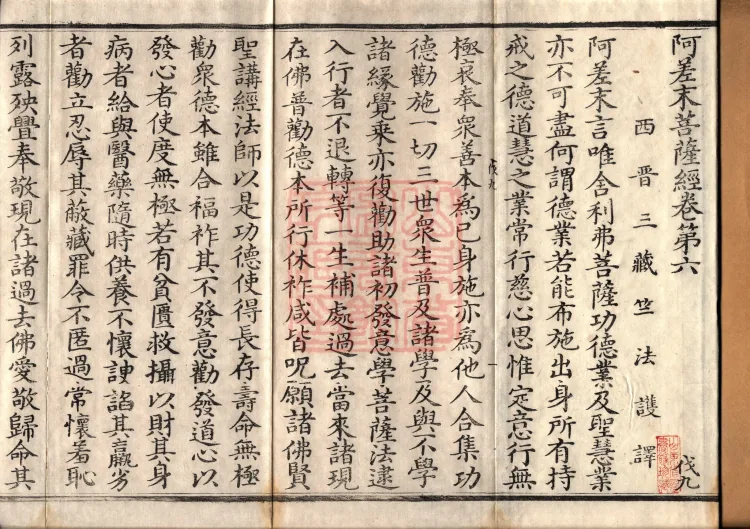 阿差末菩薩經卷第六 伐九
西晉三藏竺法護譯
阿差末言唯舍利弗菩薩功德業及聖慧業
亦不可盡何謂德業若能布施出身所有持
戒之德道慧之業常行慈心思惟定意行無
伐九 一
極哀奉衆善本為己身施亦為他人合集功
德勸施一切三世衆生普及諸學及與不學
諸緣覺乘亦復勸助諸初發意學菩薩法逮
入行者不退轉等一生補處過去當來諸現
在佛普勸德本所行休祚咸皆呪願諸佛賢
聖講經法師以是功德使得長存壽命無極
勸衆德本雖合福祚其不發意勸發道心以
發心者使度無極若有貧匱救攝以財其身
病者給與醫藥隨時供養不懷諛諂其羸劣
者勸立忍辱其蔽藏罪令不匿過常懷羞恥
列露殃舋奉敬現在諸過去佛愛敬歸命其